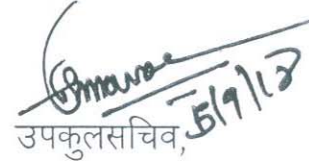 5/9/18
उपकुलसचिव,